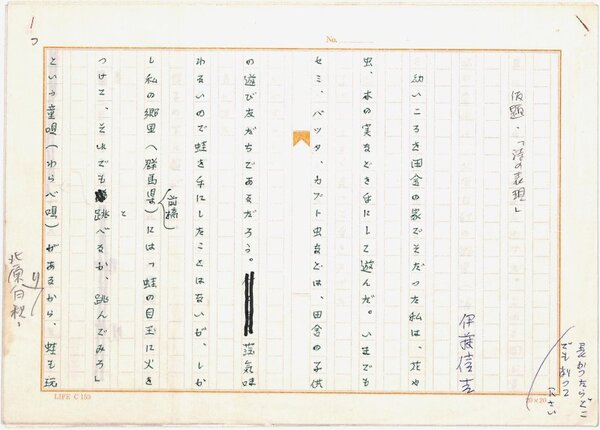 No.
長かったらどこ
でも
下さい
仮題・「詩の表現」
伊藤信吉
幼いころを田舎の家でそだった私は、花や
虫、木の実などを手にして遊んだ。いまでも
セミ、バッタ、カブト虫などは、田舎の子供
の遊び友だちであるだろう。薄気味
わるいので蛙を手にしたことはないが、しか
(前橋)
し私の郷里(群馬県)には「蛙の目玉に火を
と
つけて、それでも跳べるか、跳んでみろ」
という童唄(わらべ唄)があるから、蛙も玩
北原白秋、
LIFE C 153
20×20